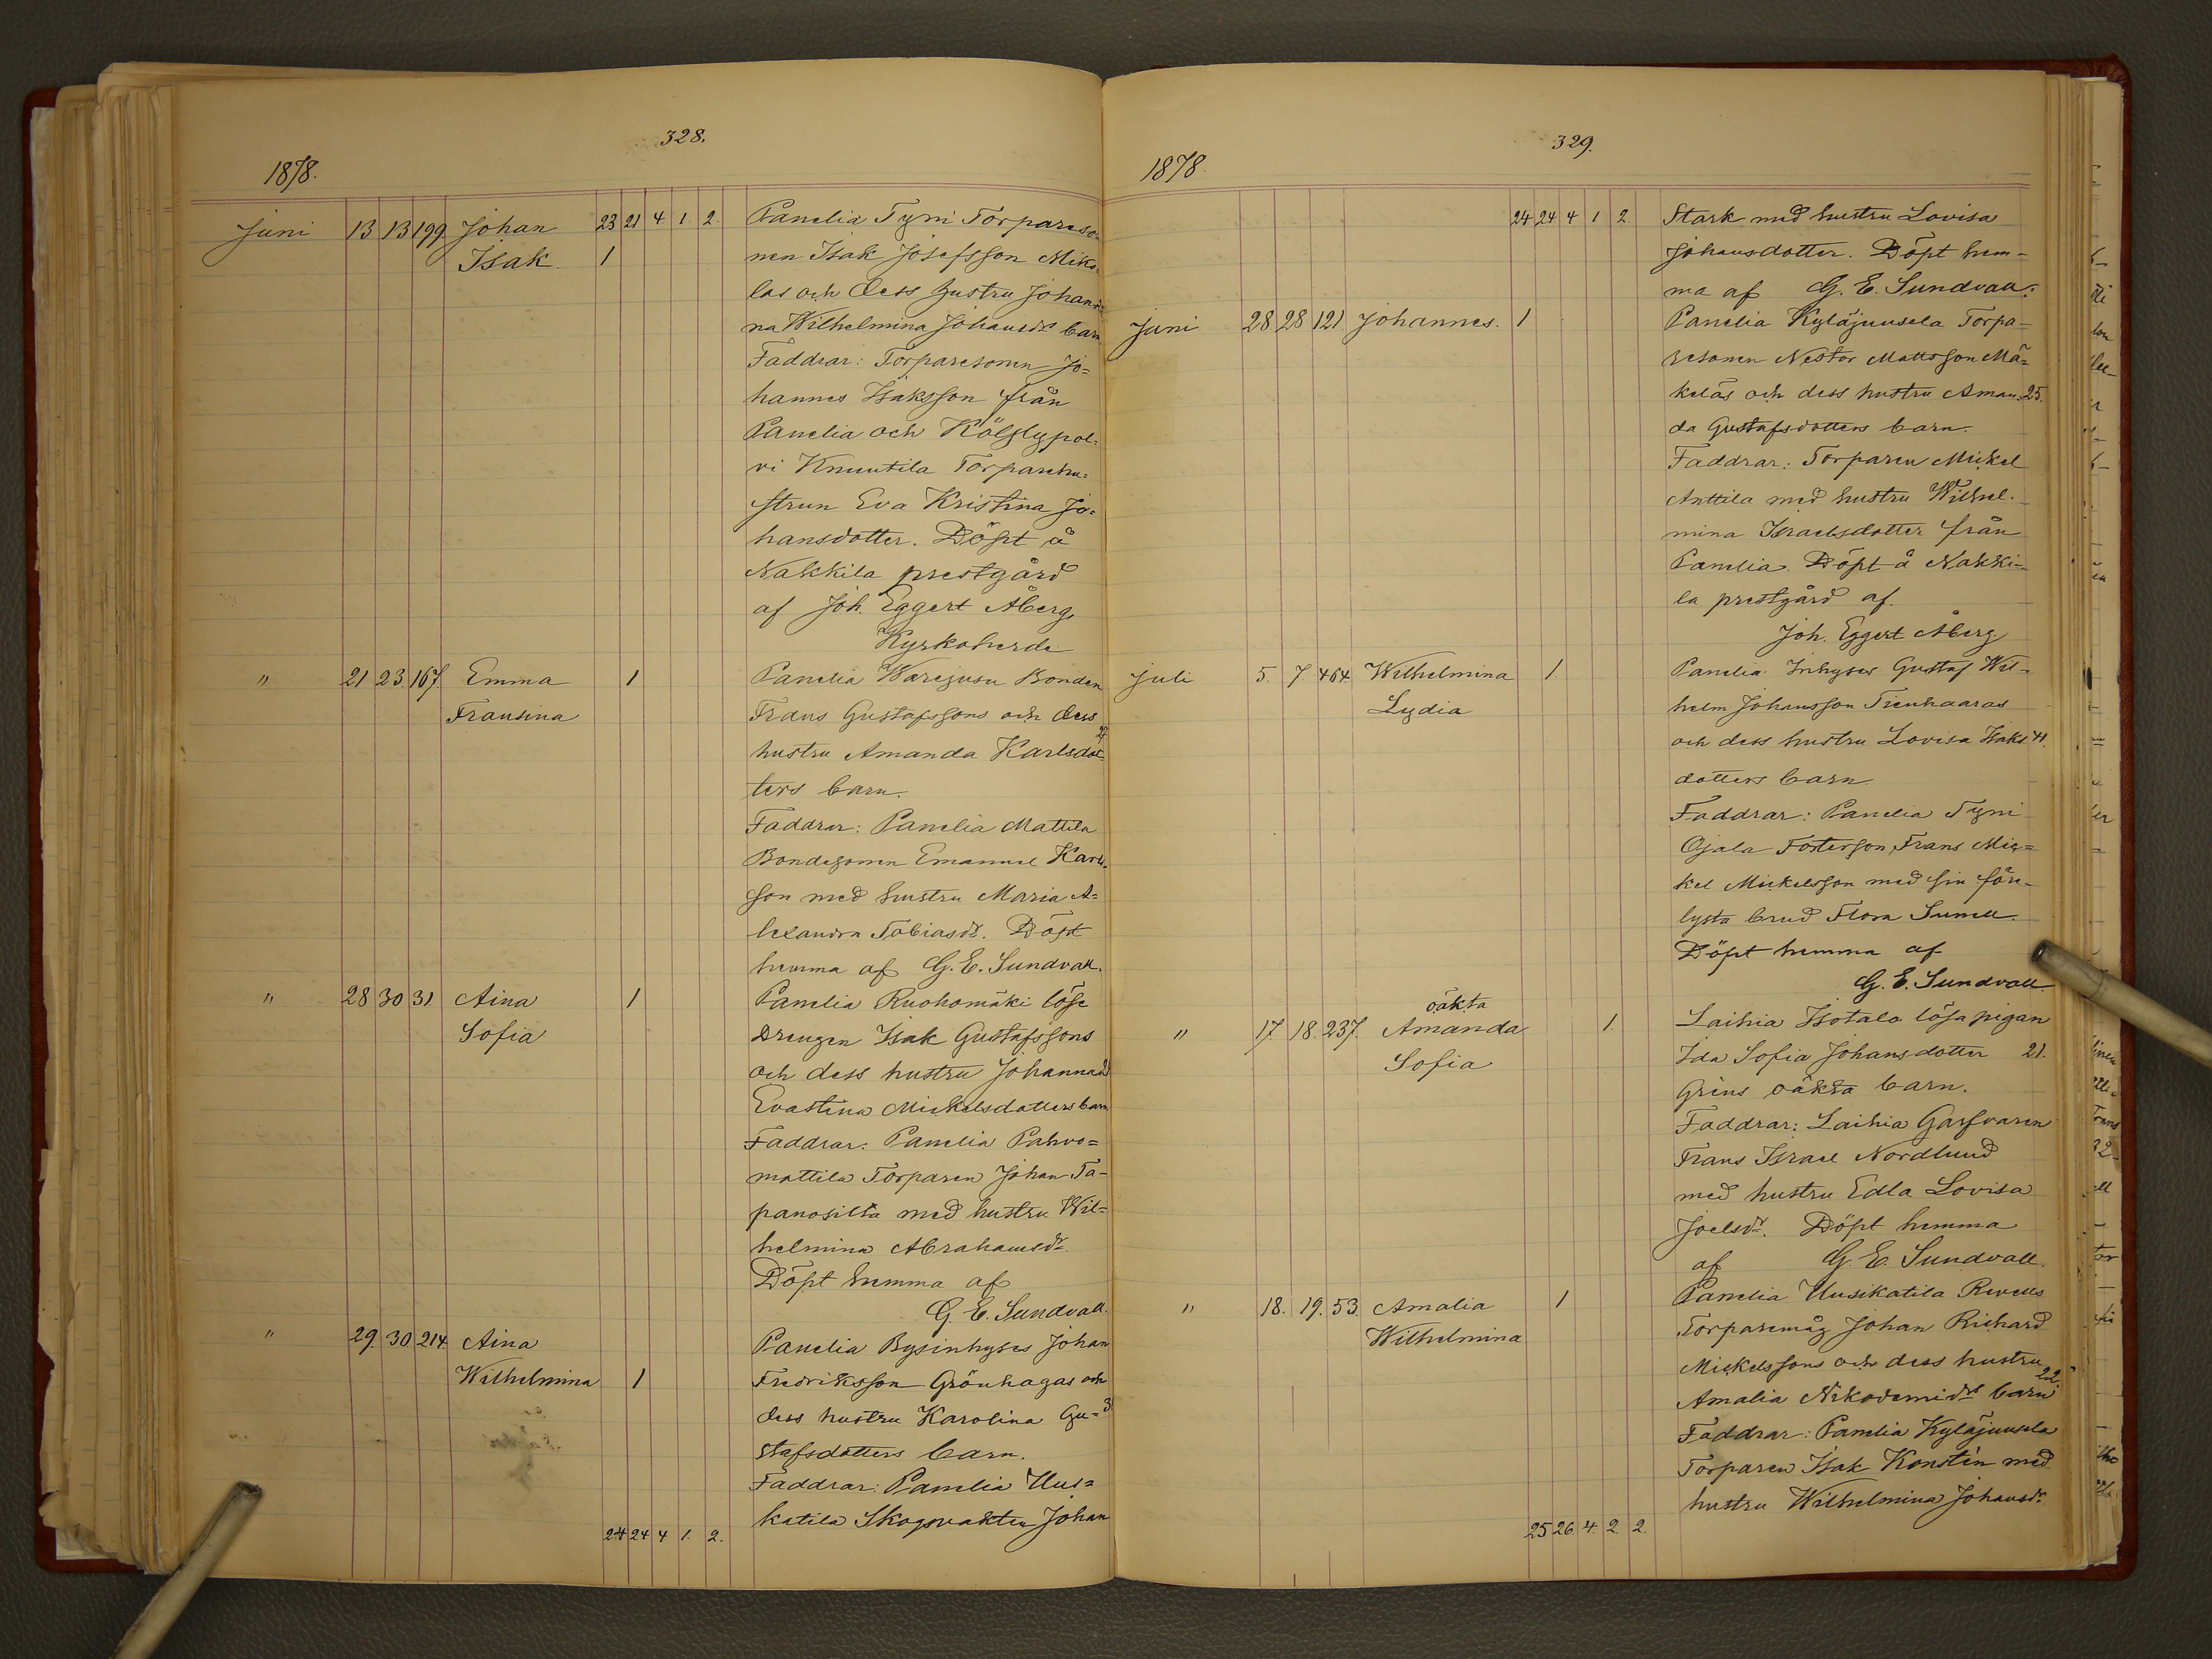 328.
1878.
Juni 13 13 199 Johan 23 21 4 1 2. Panelia Tyni Torpareso=
Isak 1 nen Isak Josefsson Mike
las och dess hustru Johan
na Wilhelmina Johansdr barn
Faddrar: Torparesonen Jo=
hannes Isaksson från
Panelia och Kölslypol=
vi Knuutila Torparehu=
strun Eva Kristina Jo=
hansdotter. Döpt å
Nakkila prestgård
af Joh. Eggert Åberg,
Kyrkoherde
" 21 23 167 Emma 1 Panelia Warejusu Bonden
Fransina Frans Gustafssons och dess
hustru Amanda Karlsdot 27
ters barn.
Faddrar: Panelia Mattila
Bondesonen Emanuel Karls=
son med hustru Maria A=
lexandra Tobiasdr. Döpt
hemma af G. E. Sundvall.
" 28 30 31 Aina 1 Panelia Ruohomäki löse
Sofia Drengen Isak Gustafssons
och dess hustru Johanna
Evastina Mickelsdotters barn
Faddrar: Panelia Pahvo=
mattila Torparen Johan Ta=
panosilta med hustru Wil=
helmina Abrahamsdr
Döpt hemma af
G. E. Sundvall.
" 29. 30 214 Aina Panelia Bysinhyses Johan
Wilhelmina 1 Fredriksson Grönhagas och
dess hustru Karolina Gu= 3
stafsdotters barn.
Faddrar: Panelia Uus=
katila Skogsvakten Johan
24 24 4 1. 2.
329.
1878.
24 24 4 1 2 Stark med hustru Lovisa
Johansdotter. Döpt hem=
ma af G. E. Sundvall.
Juni 28 28 121 Johannes. 1 Panelia Kyläjuusela Torpa=
resonen Nestor Mattsson Mä=
keläs och dess hustru Aman= 25.
da Gustafsdotters barn.
Faddrar: Torparen Mickel
Anttila med hustru Wilhel=
mina Israelsdotter från
Panelia. Döpt å Nakki=
la prestgård af.
Joh. Eggert Åberg
Juli 5. 7. 464. Wilhelmina 1. Panelia Inhyses Gustaf Wil=
Lydia helm Johansson Tienhaaras
och dess hustru Lovisa Isaks 41.
dotters barn
Faddrar: Panelia Tyni
Ojala Fosterson Frans Mic=
kel Mickelsson med sin för=
lysta brud Flora Sunell.
Döpt hemma af
G. E. Sundvall.
oäkta
" 17. 18. 237. Amanda 1. Laihia Isotalo lösa pigan
Sofia Ida Sofia Johansdotter 21.
Gréns oäkta barn.
Faddrar: Laihia Garfvaren
Frans Israel Nordlund
med hustru Edla Lovisa
Joelsdr. Döpt hemma
af G. E. Sundvall.
" 18. 19. 53. Amalia 1 Panelia Uusikatila Revells
Wilhelmina Torparemåg Johan Richard
Mickelssons och dess hustru
Amalia Nikodemidrs barn 22
Faddrar: Panelia Kyläjuusela
Torparen Isak Konstén med
hustru Wilhelmina Johansdr.
25 26 4. 2 2.